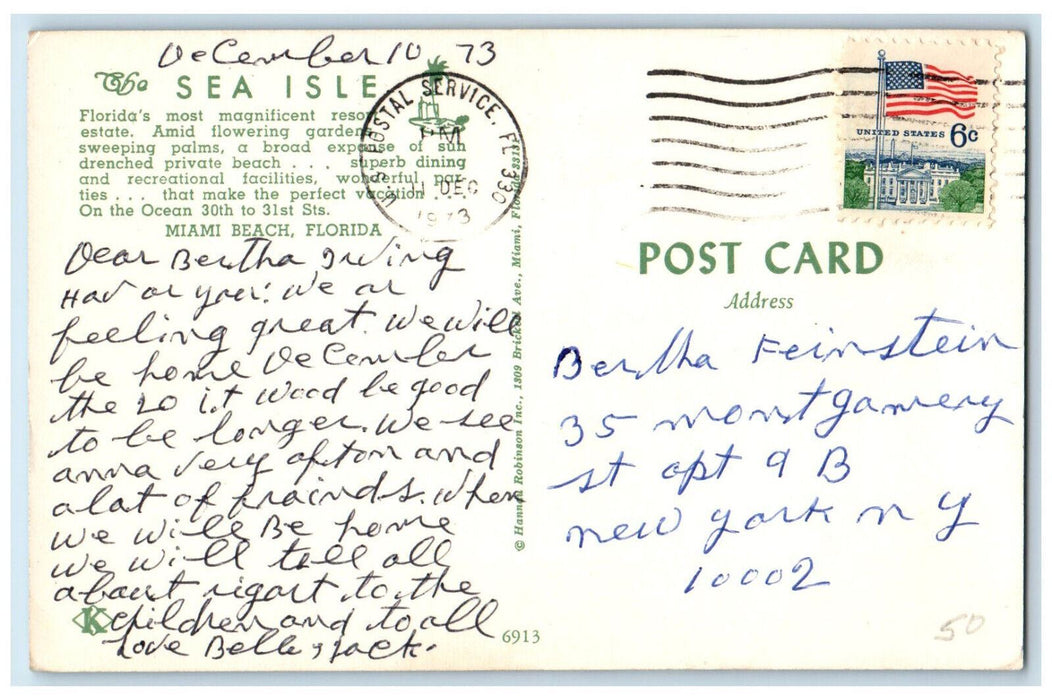 December 10 73
The
SEA ISLE
Florida's most magnificent resor
estate. Amid flowering garden
sweeping palms, a broad expanse of sun
drenched private beach . . . superb dining
and recreational facilities, wonderful par
ties . . . that make the perfect vacation . . .
On the Ocean 30th to 31st Sts.
MIAMI BEACH, FLORIDA
Dear Bertha Irving
Hav ar you: We ar
feeling great. We will
be home December
the 20 it wood be good
to be longer. We see
anna very ofton and
a lat of fraind s. When
we will Be home
we will tell all
about rigart to the
children and to all
Love Belle & Jack.
K
6913
© Hannau Robinson Inc., 1309 Brickell Ave., Miami, Florida 33131
U.S. POSTAL SERVICE, FL 330
PM
11 DEC
1973
UNITED STATES 6c
POST CARD
Address
Bertha Feinstein
35 montgamery
st apt 9 B
new york n y
10002
50